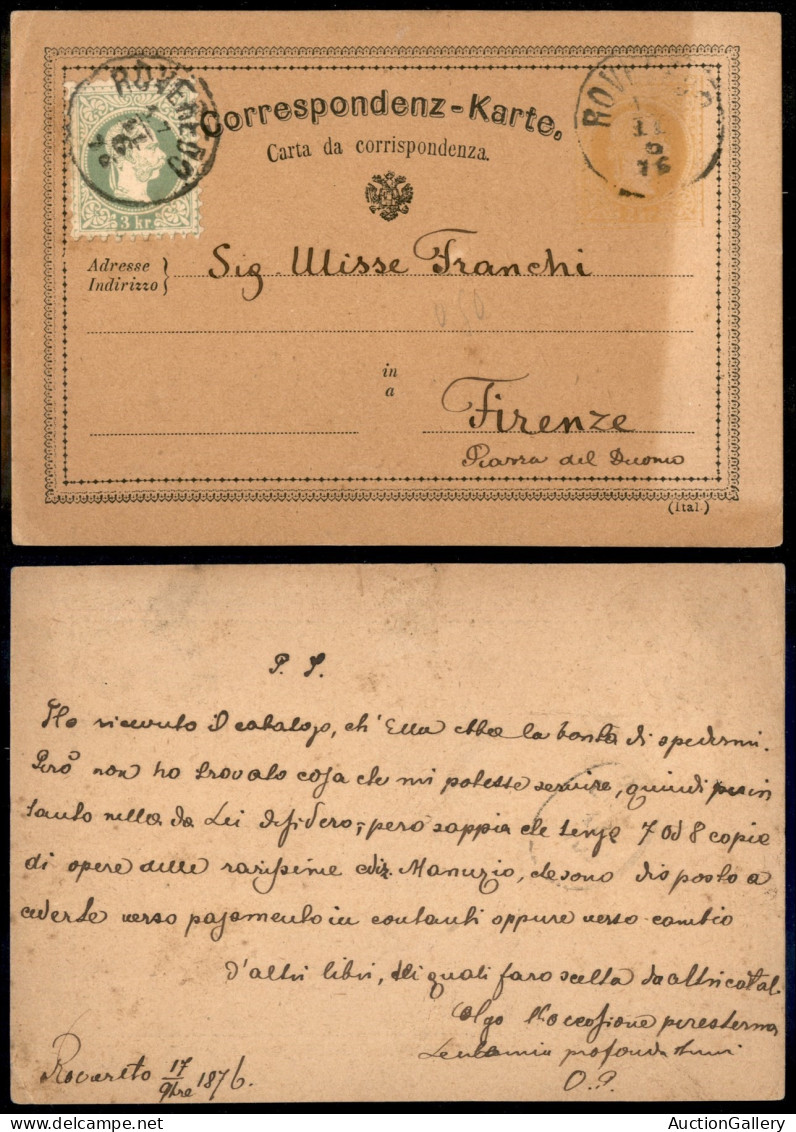 ROVEREDO
ROVEREDO
17
11
76
3 kr
Correspondenz-Karte.
Carta da corrispondenza.
Adresse
Indirizzo
Sig. Ulisse Franchi
in
a
Firenze
Piazza del Duomo
(Ital.)
P. S.
Ho ricevuto il catalogo, ch' Ella ebbe la bontà di spedirmi.
Però non ho trovato cosa che mi potesse servire, quindi per in
tanto nulla da Lei desidero; però sappia che tengo 7 od 8 copie
di opere delle rarissime ediz. Manuzio, che sono disposto a
cederle verso pagamento in contanti oppure verso cambio
d'altri libri, dei quali farò scelta da altri catal.
Colgo l'occasione per esterna
profonda stima
O. P.
Rovereto 17/9bre 1876.
AuctionGallery